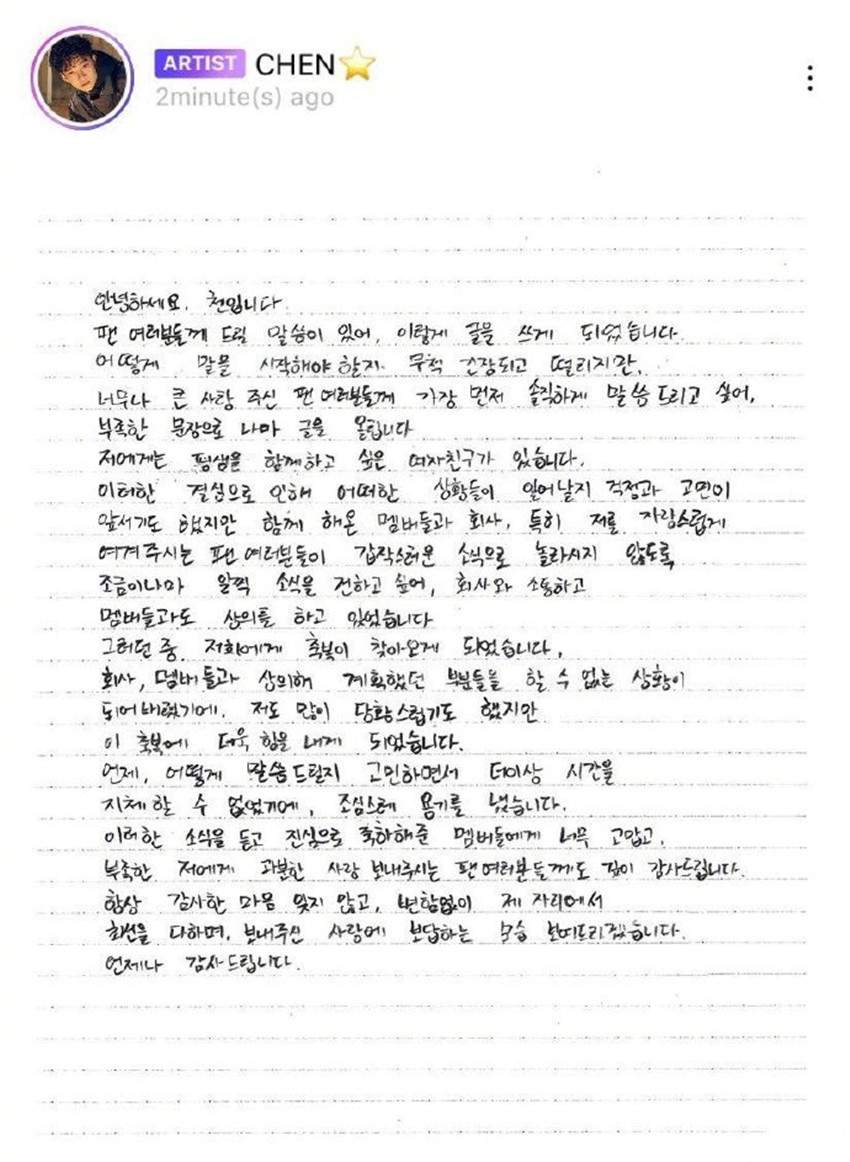 ARTIST CHEN
2minute(s) ago
안녕하세요. 첸입니다.
팬 여러분들께 드릴 말씀이 있어, 이렇게 글을 쓰게 되었습니다.
어떻게 말을 시작해야 할지 무척 긴장되고 떨리지만,
너무나 큰 사랑 주신 팬 여러분들께 가장 먼저 솔직하게 말씀드리고 싶어,
부족한 문장으로나마 글을 올립니다
저에게는 평생을 함께하고 싶은 여자친구가 있습니다.
이러한 결심으로 인해 어떠한 상황들이 일어날지 걱정과 고민이
앞서기도 했지만 함께 해온 멤버들과 회사, 특히 저를 자랑스럽게
여겨주시는 팬 여러분들이 갑작스러운 소식으로 놀라시지 않도록
조금이나마 일찍 소식을 전하고 싶어, 회사와 소통하고
멤버들과도 상의를 하고 있었습니다
그러던 중, 저희에게 축복이 찾아오게 되었습니다.
회사, 멤버들과 상의해 계획했던 부분들을 할 수 없는 상황이
되어버렸기에, 저도 많이 당황스럽기도 했지만
이 축복에 더욱 힘을 내게 되었습니다.
언제, 어떻게 말씀드릴지 고민하면서 더이상 시간을
지체할 수 없었기에, 조심스레 용기를 냈습니다.
이러한 소식을 듣고 진심으로 축하해준 멤버들에게 너무 고맙고,
부족한 저에게 과분한 사랑 보내주시는 팬 여러분들께도 깊이 감사드립니다.
항상 감사한 마음 잊지 않고, 변함없이 제 자리에서
최선을 다하며, 보내주신 사랑에 보답하는 모습 보여드리겠습니다.
언제나 감사드립니다.